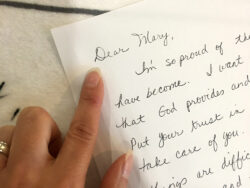 Dear Mary,
I'm so proud of the
have become. I want
that God provides and
Put your trust in
take care of you
things are diffic
and